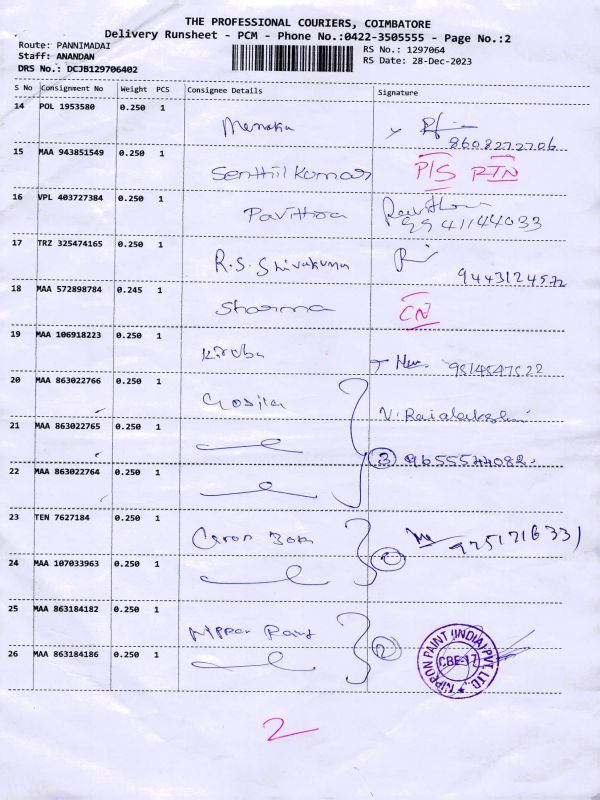 THE PROFESSIONAL COURIERS, COIMBATORE
Delivery Runsheet - PCM - Phone No.:0422-3505555 - Page No.:2
Route: PANNIMADAI RS No.: 1297064
Staff: ANANDAN RS Date: 28-Dec-2023
DRS No.: DCJB129706402
S No Consignment No Weight PCS Consignee Details Signature
14 POL 1953580 0.250 1 Menaka
8608272706
15 MAA 943851549 0.250 1 Senthil Kumar P/S RTN
16 VPL 403727384 0.250 1 Pavithra Pavithra
9941144033
17 TRZ 325474165 0.250 1 R.S. Shivakumar
9443124572
18 MAA 572898784 0.245 1 Sharma CN
19 MAA 106918223 0.250 1 Kiruba 9514547522
20 MAA 863022766 0.250 1 V. Rajalakshmi
21 MAA 863022765 0.250 1
3 9655544082.
22 MAA 863022764 0.250 1
23 TEN 7627184 0.250 1 9251716331
24 MAA 107033963 0.250 1
25 MAA 863184182 0.250 1 Nippon Paint
26 MAA 863184186 0.250 1 2
NIPPON PAINT (INDIA) PVT. LTD.
CBE-17
2